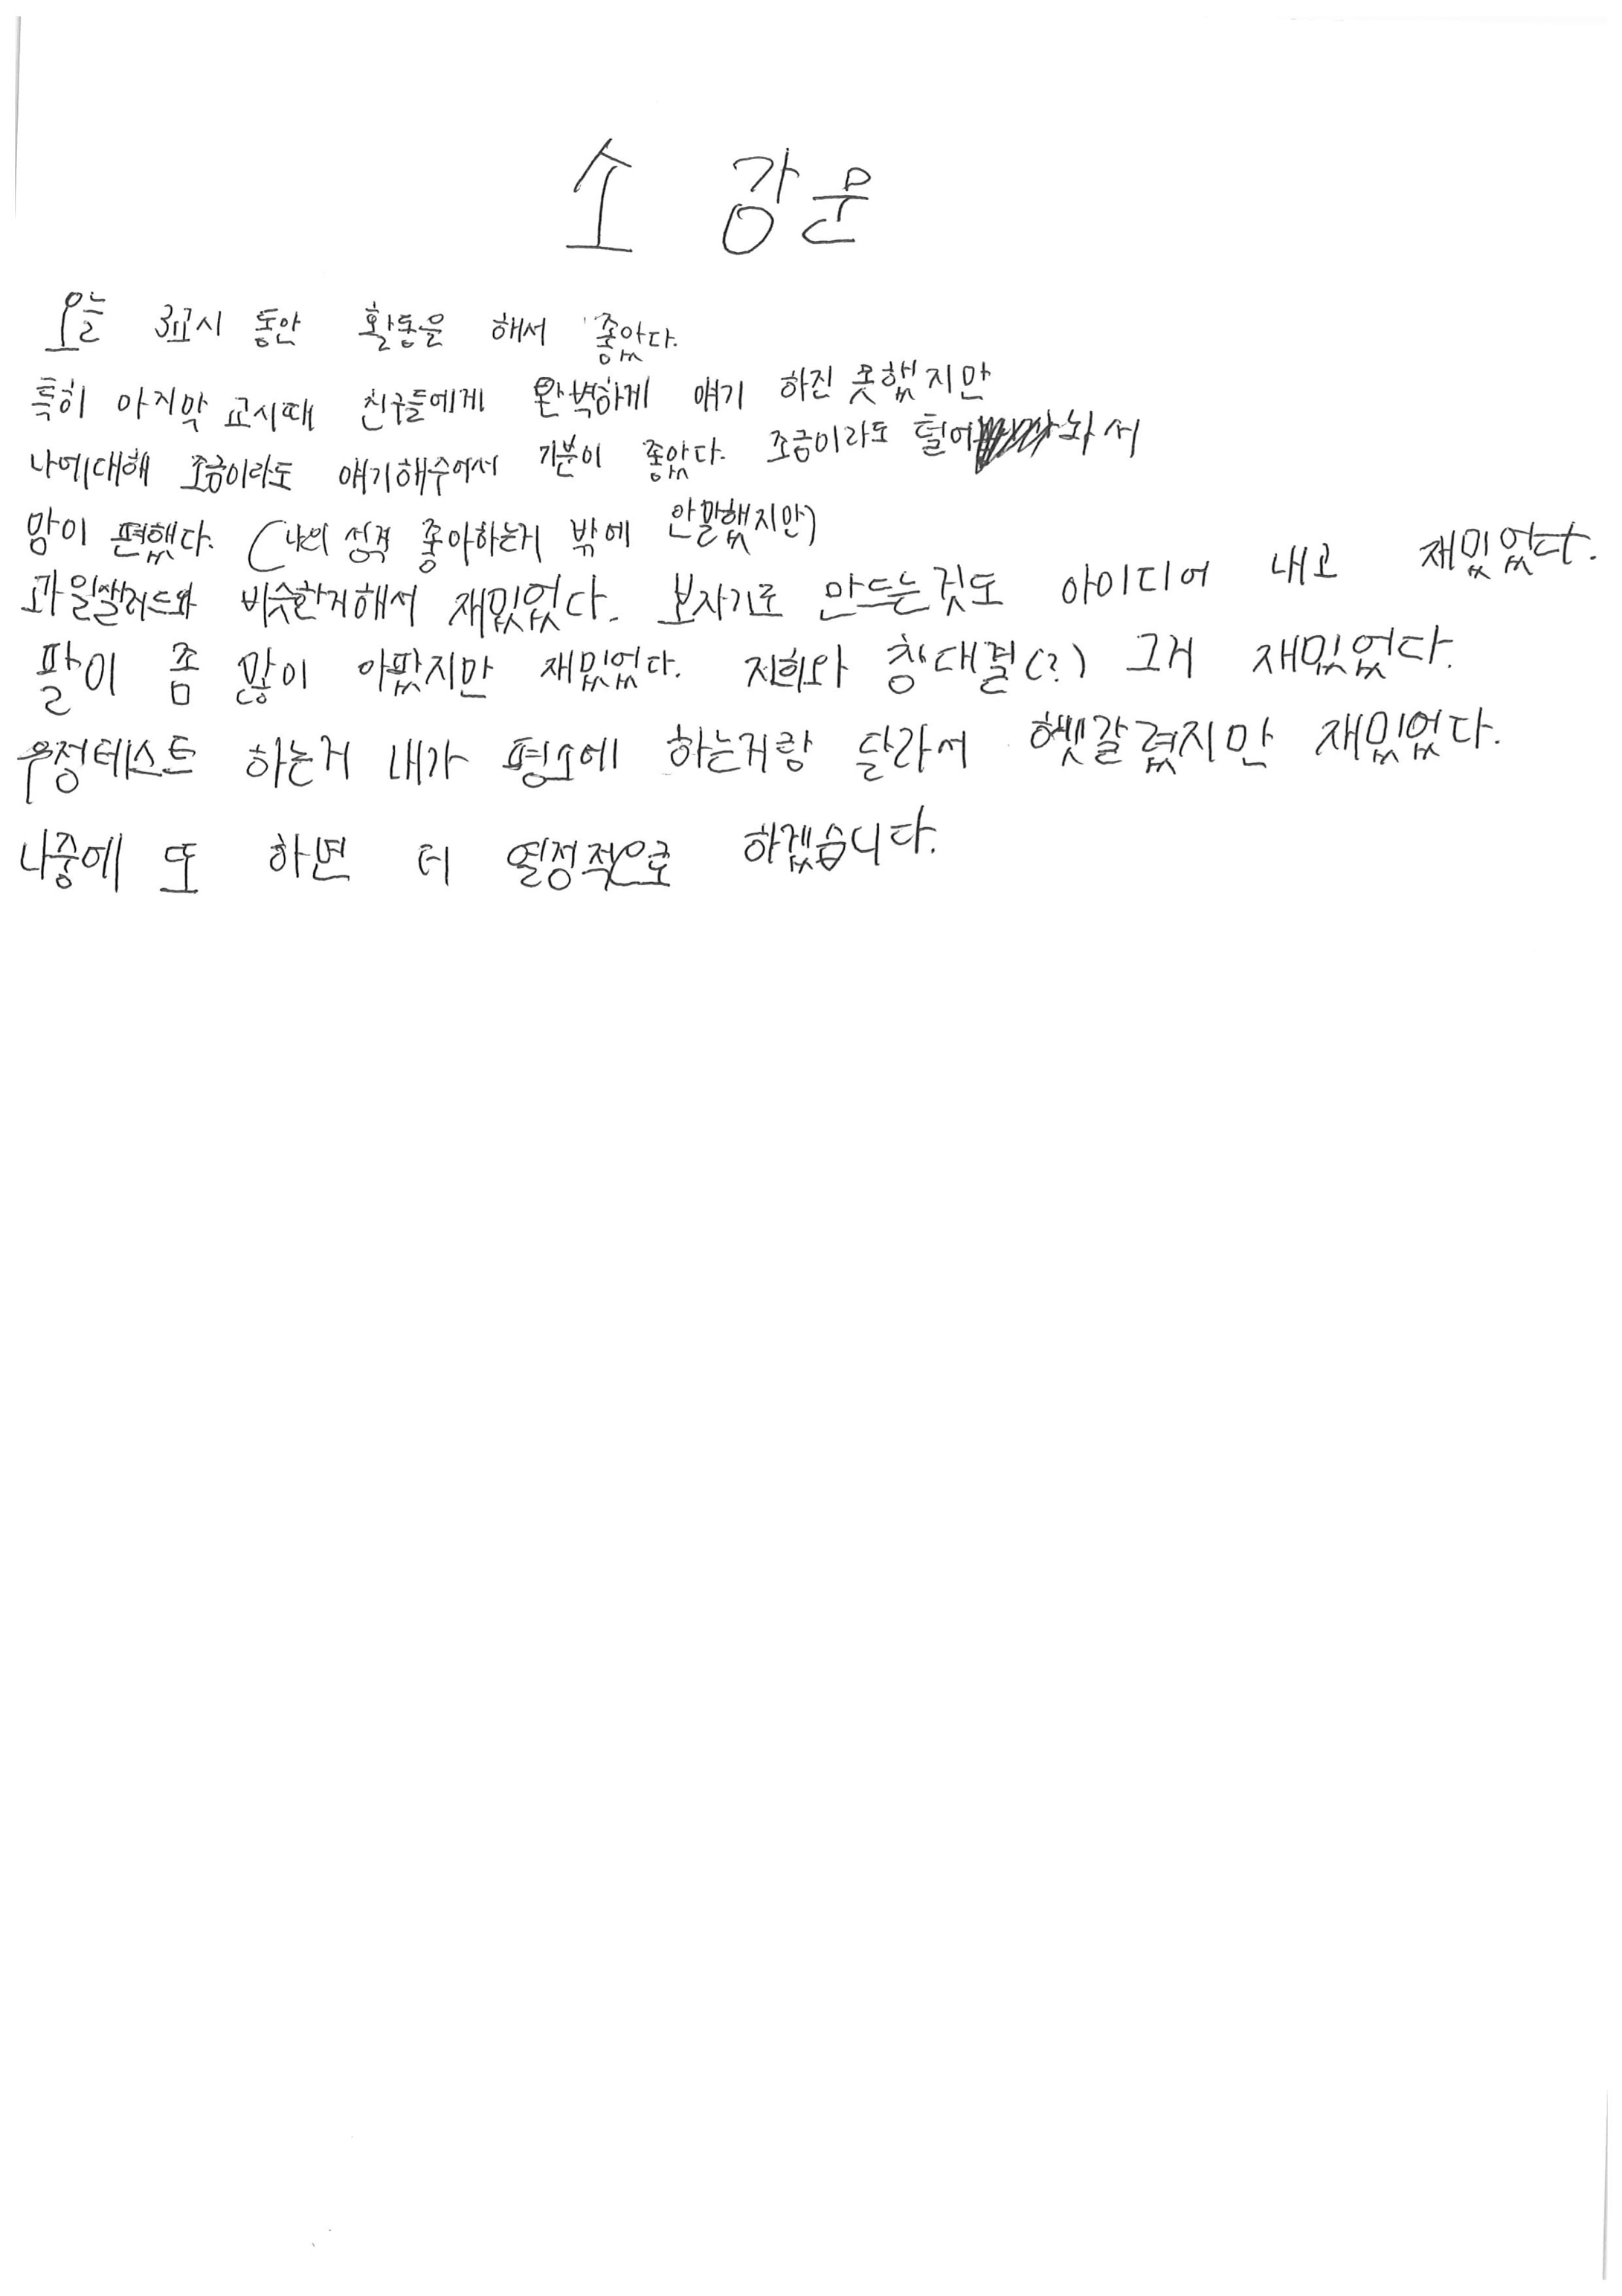 소 강운
오늘 3교시 동안 활동을 해서 좋았다.
특히 마지막 교시때 친구들에게 완벽하게 얘기 하진 못했지만
나에대해 조금이라도 얘기해주어서 기분이 좋았다. 조금이라도 털어놔서
맘이 편했다. (나의 성격 좋아하는거 밖에 안말했지만)
과일샐러드와 비슷한거해서 재밌었다. 보자기로 만드는것도 아이디어 내고 재밌었다.
팔이 좀 많이 아팠지만 재밌었다. 저희와 창대결(?) 그거 재밌었다.
우정테스트 하는거 내가 평소에 하는거랑 달라서 햇갈렸지만 재밌었다.
나중에 또 하면 더 열정적으로 하겠습니다.